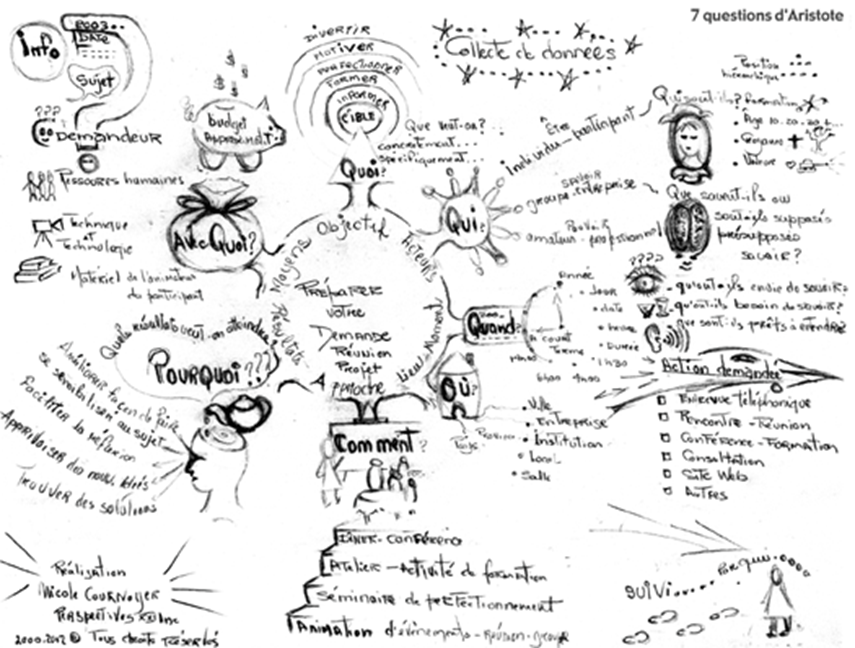 7 questions d'Aristote
info
2003
DATE
Sujet
???
DEMANDEUR
budget
Approximatif
DIVERTIR
MOTIVER
PERFECTIONNER
FORMER
INFORMER
CIBLE
Quoi?
Que veut-on?
concrètement...
spécifiquement...
Collecte de données
Position
hiérarchique
Qui sont-ils?
Formation
Age 10.20.20.
Croyance
Valeur
Être
Individu-participant
savoir
groupe-entreprise
Pouvoir
amateur-professionnel
QUI?
Que savent-ils ou
sont-ils supposés
présupposés
savoir?
????
qu'ont-ils envie de savoir?
qu'ont-ils besoin de savoir?
que sont-ils prêts à entendre?
Ressources humaines
Technique
et
Technologie
Matériel de l'animateur
du participant
Avec Quoi?
Moyens
Objectif
Acteurs
Moment
Lieu
Résultats
PRÉPARER
votre
DEMANDE
Réunion
Projet
Approche
Quand?
Année
Jour
date
heure
Durée
à court
Terme
1h30
Où?
Ville
Entreprise
Institution
Local
Salle
Pays
Province
Quels résultats veut-on atteindre
POURQUOI???
Améliorer façon de faire
se sensibiliser au sujet
Faciliter la réflexion
Trouver des solutions
Comment?
Action demandée
Entrevue téléphonique
Rencontre-Réunion
Conférence-Formation
Consultation
Site Web
Autres
Dîner-conférence
Atelier-Activité de formation
Séminaire de perfectionnement
Animation d'évènements-Réunion-groupe
Réalisation
Nicole COURNOYER
PERSPECTIVES XXI Inc
2000.2012 © Tous droits réservés
SUIVI......
Pourquoi....